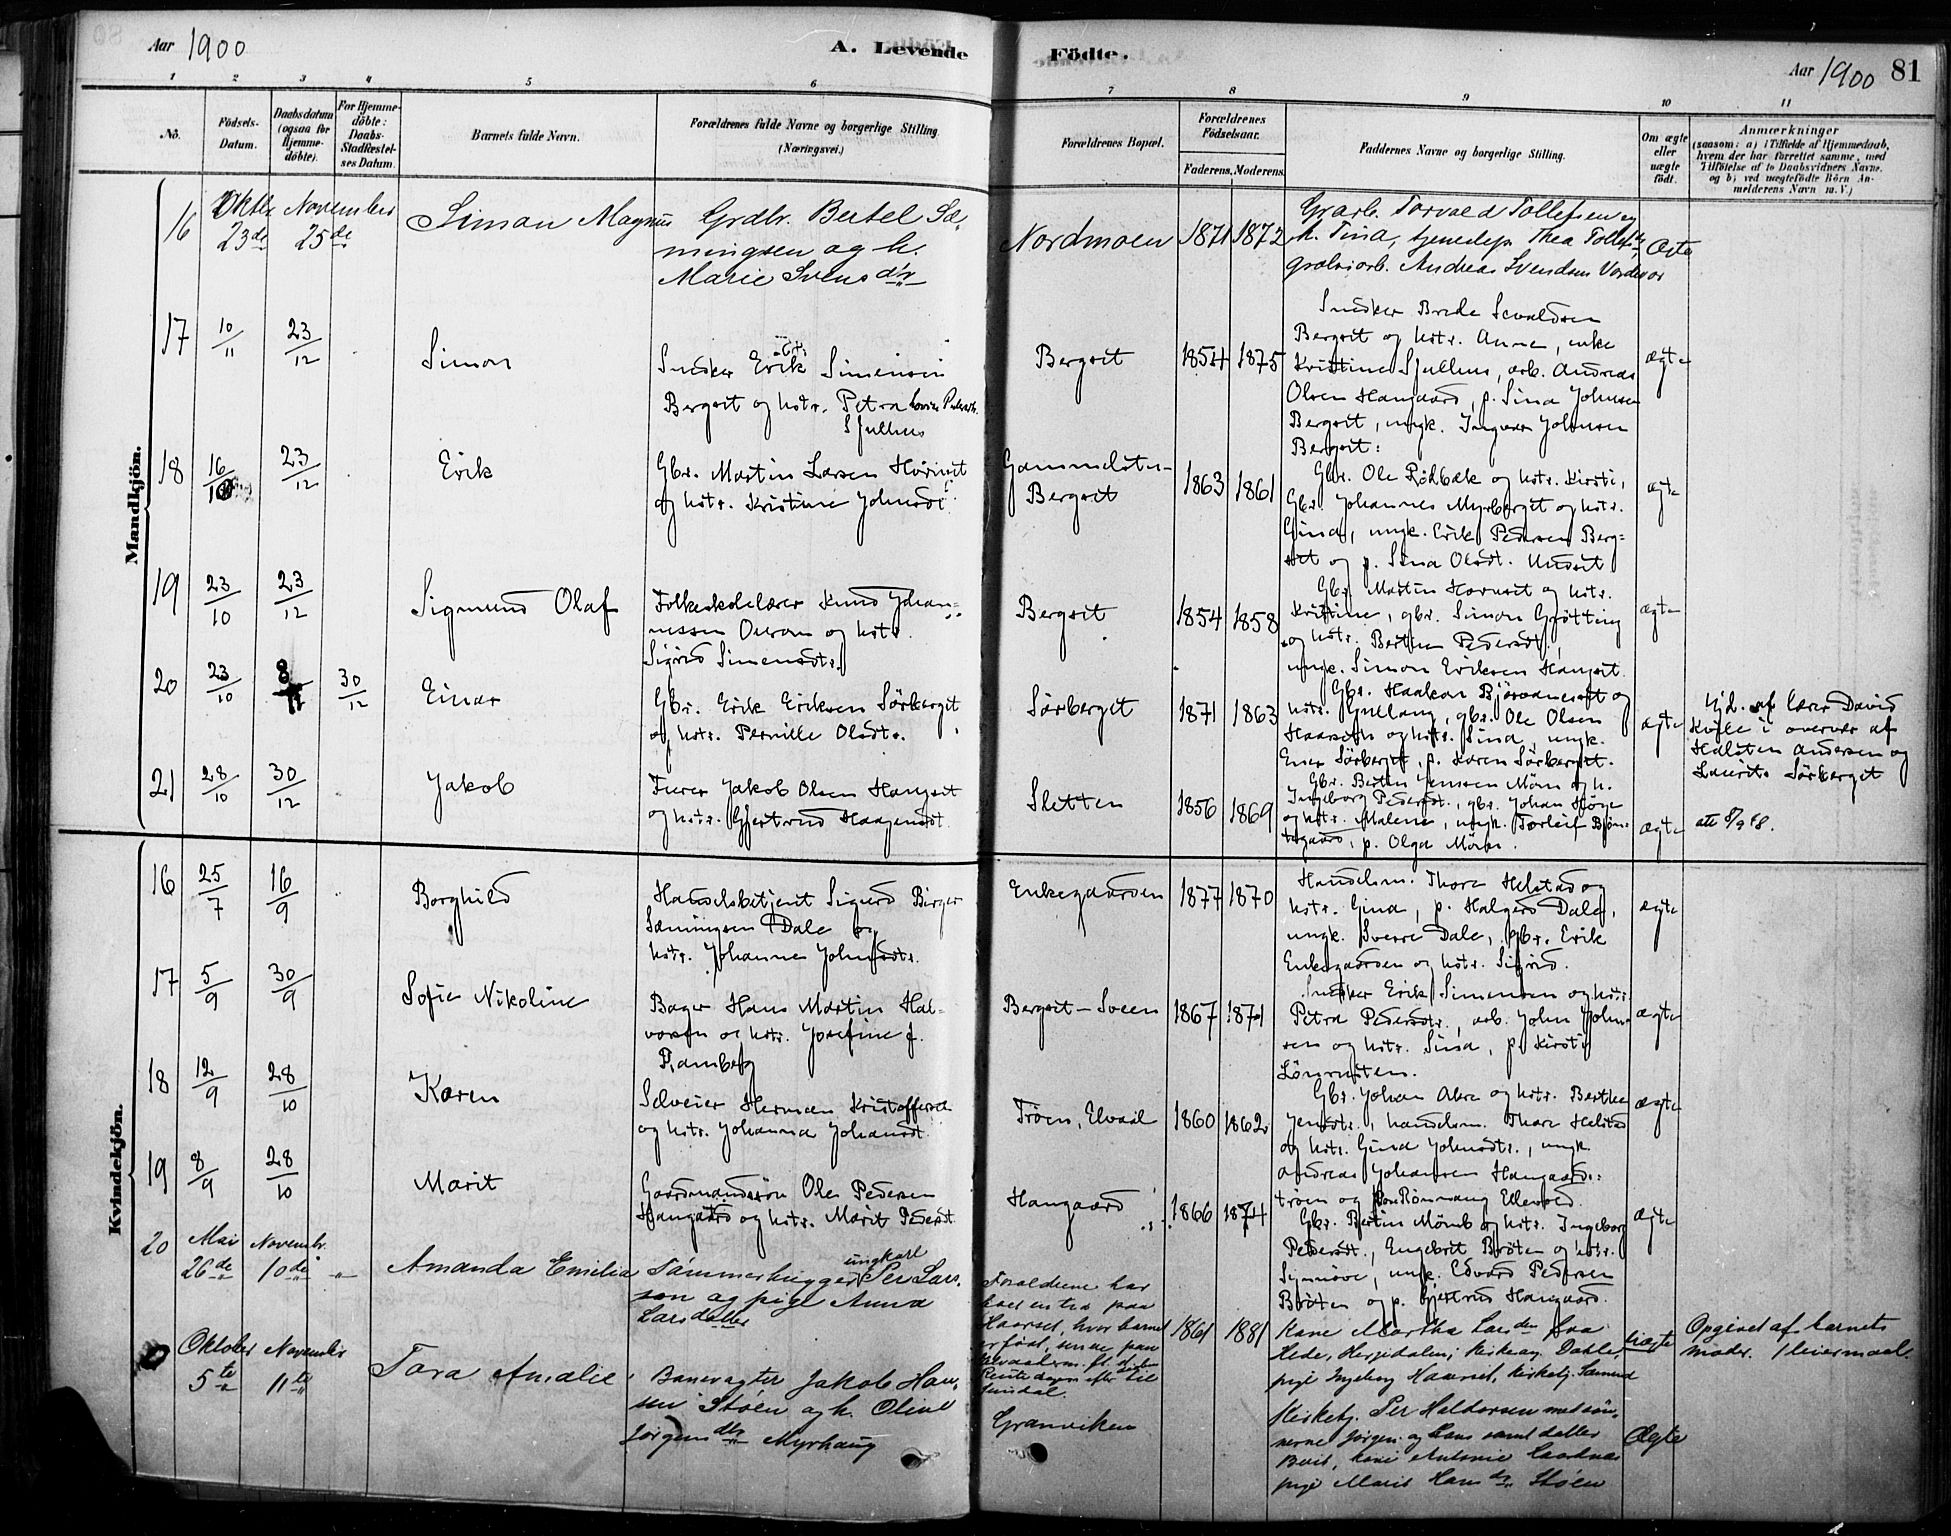 Aar 1900
A. Levende
Födte.
Aar 1900
81
1 2 3 4 5 6 7 8 9 10 11
No.
Födsels-
Datum.
Daabsdatum
(ogsaa for
Hjemme-
döbte).
For Hjemme-
döbte:
Daabs-
Stadfæstel-
ses Datum.
Barnets fulde Navn.
Forældrenes fulde Navne og borgerlige Stilling.
(Næringsvei.)
Forældrenes Bopæl.
Forældrenes
Födselsaar.
Faderens. Moderens.
Faddernes Navne og borgerlige Stilling.
Om ægte
eller
uægte
født.
Anmærkninger
(saasom: a) i Tilfælde af Hjemmedaab,
hvem der har forrettet samme, med
Tilföielse af to Daabsvidners Navne.
og b) ved uægtefödte Börn An-
melderens Navn m. V.)
Mandkjön.
16
Oktbr. November
23de 25de
Simon Magnus
Grdbr. Bertel Sæ-
mingsen og h.
Marie Svensdtr
Nordmoen
1871 1872
Grarb. Torvald Tollefsen og
h. Tina, tjenestep. Thea Tollefsdtr,
Andreas Svendsen
Ægte
17
10/11
23/12
Simon
Snedker Erik Simensen
Bergset og hstr. Petra Lovise Pedersdtr.
Sjulhus
Bergset
1854 1875
Snedker Brede Sevaldsen
Bergset og hstr. Anne, enke
Kristine Sjulhus, arb. Andreas
Olsen Hangaard, p. Sina Johnsen
Bergset, ungk. Ingvar Johnsen
Bergset.
ægte
18
16/10
23/12
Erik
Gbr. Martin Larsen Hornset
og hstr. Kristine Johnsdt.
Gammelstu-
Bergset
1863 1861
Gbr. Ole Rödbæk og hstr. Kirsti,
Gbr. Johannes Myrberget og hstr.
Gina, ungk. Erik Pedersen Berg-
set og p. Sina Olsdt. Undset
ægte
19
23/10
23/12
Sigmund Olaf
Folkeskolelærer Knud Johan-
nessen Ousom og hstr.
Sigrid Simensdtr.
Bergset
1854 1858
Gbr. Martin Hornset og hstr.
Kristine, gbr. Simon Gjötting
og hstr. Berthe Pedersdt.,
ungk. Simon Eriksen Hangset
ægte
20
23/10
8/11
30/12
Einar
Gbr. Erik Eriksen Sörberget
og hstr. Pernille Olsdtr.
Sörberget
1871 1863
Gbr. Haakon Björvaneset og
hstr. Gullaug, gbr. Ole Olsen
Haarseth og hstr. Sina, ungk.
Einar Sörberget, p. Karen Sörberget.
ægte
Hjd. af lærer David
Kvile i overvær af
Halsten Andersen og
Laurits Sörberget
21
28/10
30/12
Jakob
Furer Jakob Olsen Hangset
og hstr. Gjertrud Haagensdt.
Sletten
1856 1869
Gbr. Bertin Jenssen Mörn og h.
Ingeborg Pedersdt., gbr. Johan Höye
og hstr. Malene, ungk. Torleif Björn-
stgaard, p. Olga Mörk.
ægte
att 8/9 68.
Kvindekjön.
16
25/7
16/9
Borghild
Handelsbetjent Sigurd Birger
Sæmingsen Dale og
hstr. Johanne Johnsdtr.
Enkegaarden
1877 1870
Handelsm. Thore Helstad og
hstr. Gina, p. Halgerd Dale,
ungk. Sverre Dale, gbr. Erik
Enkegaarden og hstr. Sigrid.
ægte
17
5/9
30/9
Sofie Nikoline
Bager Hans Martin Hal-
vorsen og hstr. Josefine J.
Ramberg
Bergset-Sveen
1867 1871
Snedker Erik Simensen og hstr
Petra Pedersdtr., arb. John John-
sen og hstr. Sina, p. Kirsti
ægte
18
12/9
28/10
Karen
Selveier Herman Kristoffersen
og hstr. Johanna Johansdt.
Tröen, Elvaal
1860 1862
Gbr. Johan Akre og hstr. Berthe
Jensdt., handelsm. Thore Helstad
og hstr. Gina Johnsdtr., ungk.
Andreas Johansen Hangaard-
tröen og Rönnaug Ellevold
ægte
19
8/9
28/10
Marit
Gaardmandssön Ole Pedersen
Hangaard og hstr. Marit Pedersdt.
Hangaard
1866 1874
Gbr. Bertin Mömb og hstr. Ingeborg
Pedersdt., Engebret Bröten og hstr.
Synnöve, ungk. Edvard Pedersen
Bröten og p. Gjertrud Hangaard.
ægte
20
Mai Novembr.
26de 10de "
Amanda Emilia
Tömmerhugger ungkarl Per Lars-
son og pige Anna
Larsdatter
Forældrene har
paa
Haarset, hvor barnet
er født,
1861 1881
Kone Martha Larsdtr fra
Hede, Herjedalen, kirkesg. Dahle,
pige Ingeborg Haarset, kirkesg.
Uægte
Opgivet af barnets
moder. 1 leiermaal.
Oktober November
5te 11te
Tora Amalie
Banevagter Jakob Han-
sen Stöen og h. Oline
Jörgensdtr Myrhaug
Granviken
Kirketj. Per Haldorsen med søn-
nerne Jörgen og Hans samt datter
Berit, kone Antonie
pige Marit Hansdtr Stöen
Ægte